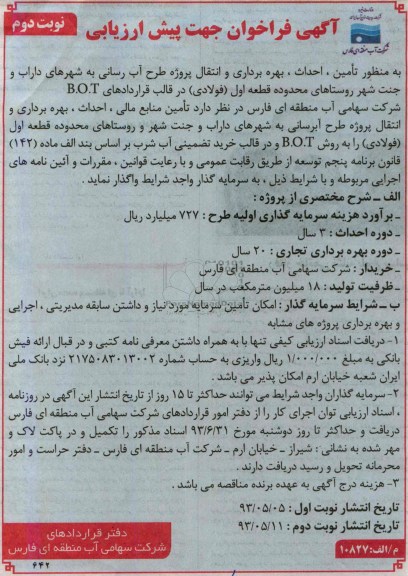 نوبت دوم
آگهی فراخوان جهت پیش ارزیابی
شرکت آب منطقه ای فارس
به منظور تأمین ، احداث ، بهره برداری و انتقال پروژه طرح آب رسانی به شهرهای داراب و
جنت شهر روستاهای محدوده قطعه اول (فولادی) در قالب قراردادهای B.O.T
شرکت سهامی آب منطقه ای فارس در نظر دارد تأمین منابع مالی ، احداث ، بهره برداری و
انتقال پروژه طرح آبرسانی به شهرهای داراب و جنت شهر و روستاهای محدوده قطعه اول
(فولادی) را به روش B.O.T و در قالب خرید تضمینی آب شرب بر اساس بند الف ماده (۱۴۲)
قانون برنامه پنجم توسعه از طریق رقابت عمومی و با رعایت قوانین ، مقررات و آئین نامه های
اجرایی مربوطه و با شرایط ذیل ، به سرمایه گذار واجد شرایط واگذار نماید .
الف ــ شرح مختصری از پروژه :
ـ برآورد هزینه سرمایه گذاری اولیه طرح : ۷۲۷ میلیارد ریال
ـ دوره احداث : ۳ سال
ـ دوره بهره برداری تجاری : ۲۰ سال
ـ خریدار : شرکت سهامی آب منطقه ای فارس
ـ ظرفیت تولید : ۱۸ میلیون مترمکعب در سال
ب ــ شرایط سرمایه گذار : امکان تأمین سرمایه مورد نیاز و داشتن سابقه مدیریتی ، اجرایی
و بهره برداری پروژه های مشابه
۱- دریافت اسناد ارزیابی کیفی تنها با به همراه داشتن معرفی نامه کتبی و در قبال ارائه فیش
بانکی به مبلغ ۱/۰۰۰/۰۰۰ ریال واریزی به حساب شماره ۲۱۷۵۰۸۳۰۱۳۰۰۲ نزد بانک ملی
ایران شعبه خیابان ارم امکان پذیر می باشد .
۲- سرمایه گذاران واجد شرایط می توانند حداکثر تا ۱۵ روز از تاریخ انتشار این آگهی در روزنامه
، اسناد ارزیابی توان اجرای کار را از دفتر امور قراردادهای شرکت سهامی آب منطقه ای فارس
دریافت و حداکثر تا روز دوشنبه مورخ ۹۳/۶/۳۱ اسناد مذکور را تکمیل و در پاکت لاک و
مهر شده به نشانی : شیراز ـ خیابان ارم ـ شرکت آب منطقه ای فارس ـ دفتر حراست و امور
محرمانه تحویل و رسید دریافت دارند .
۳- هزینه درج آگهی به عهده برنده مناقصه می باشد .
تاریخ انتشار نوبت اول : ۹۳/۰۵/۰۵
تاریخ انتشار نوبت دوم : ۹۳/۰۵/۱۱
دفتر قراردادهای
شرکت سهامی آب منطقه ای فارس
م/الف:۱۰۸۲۷
۶۴۲